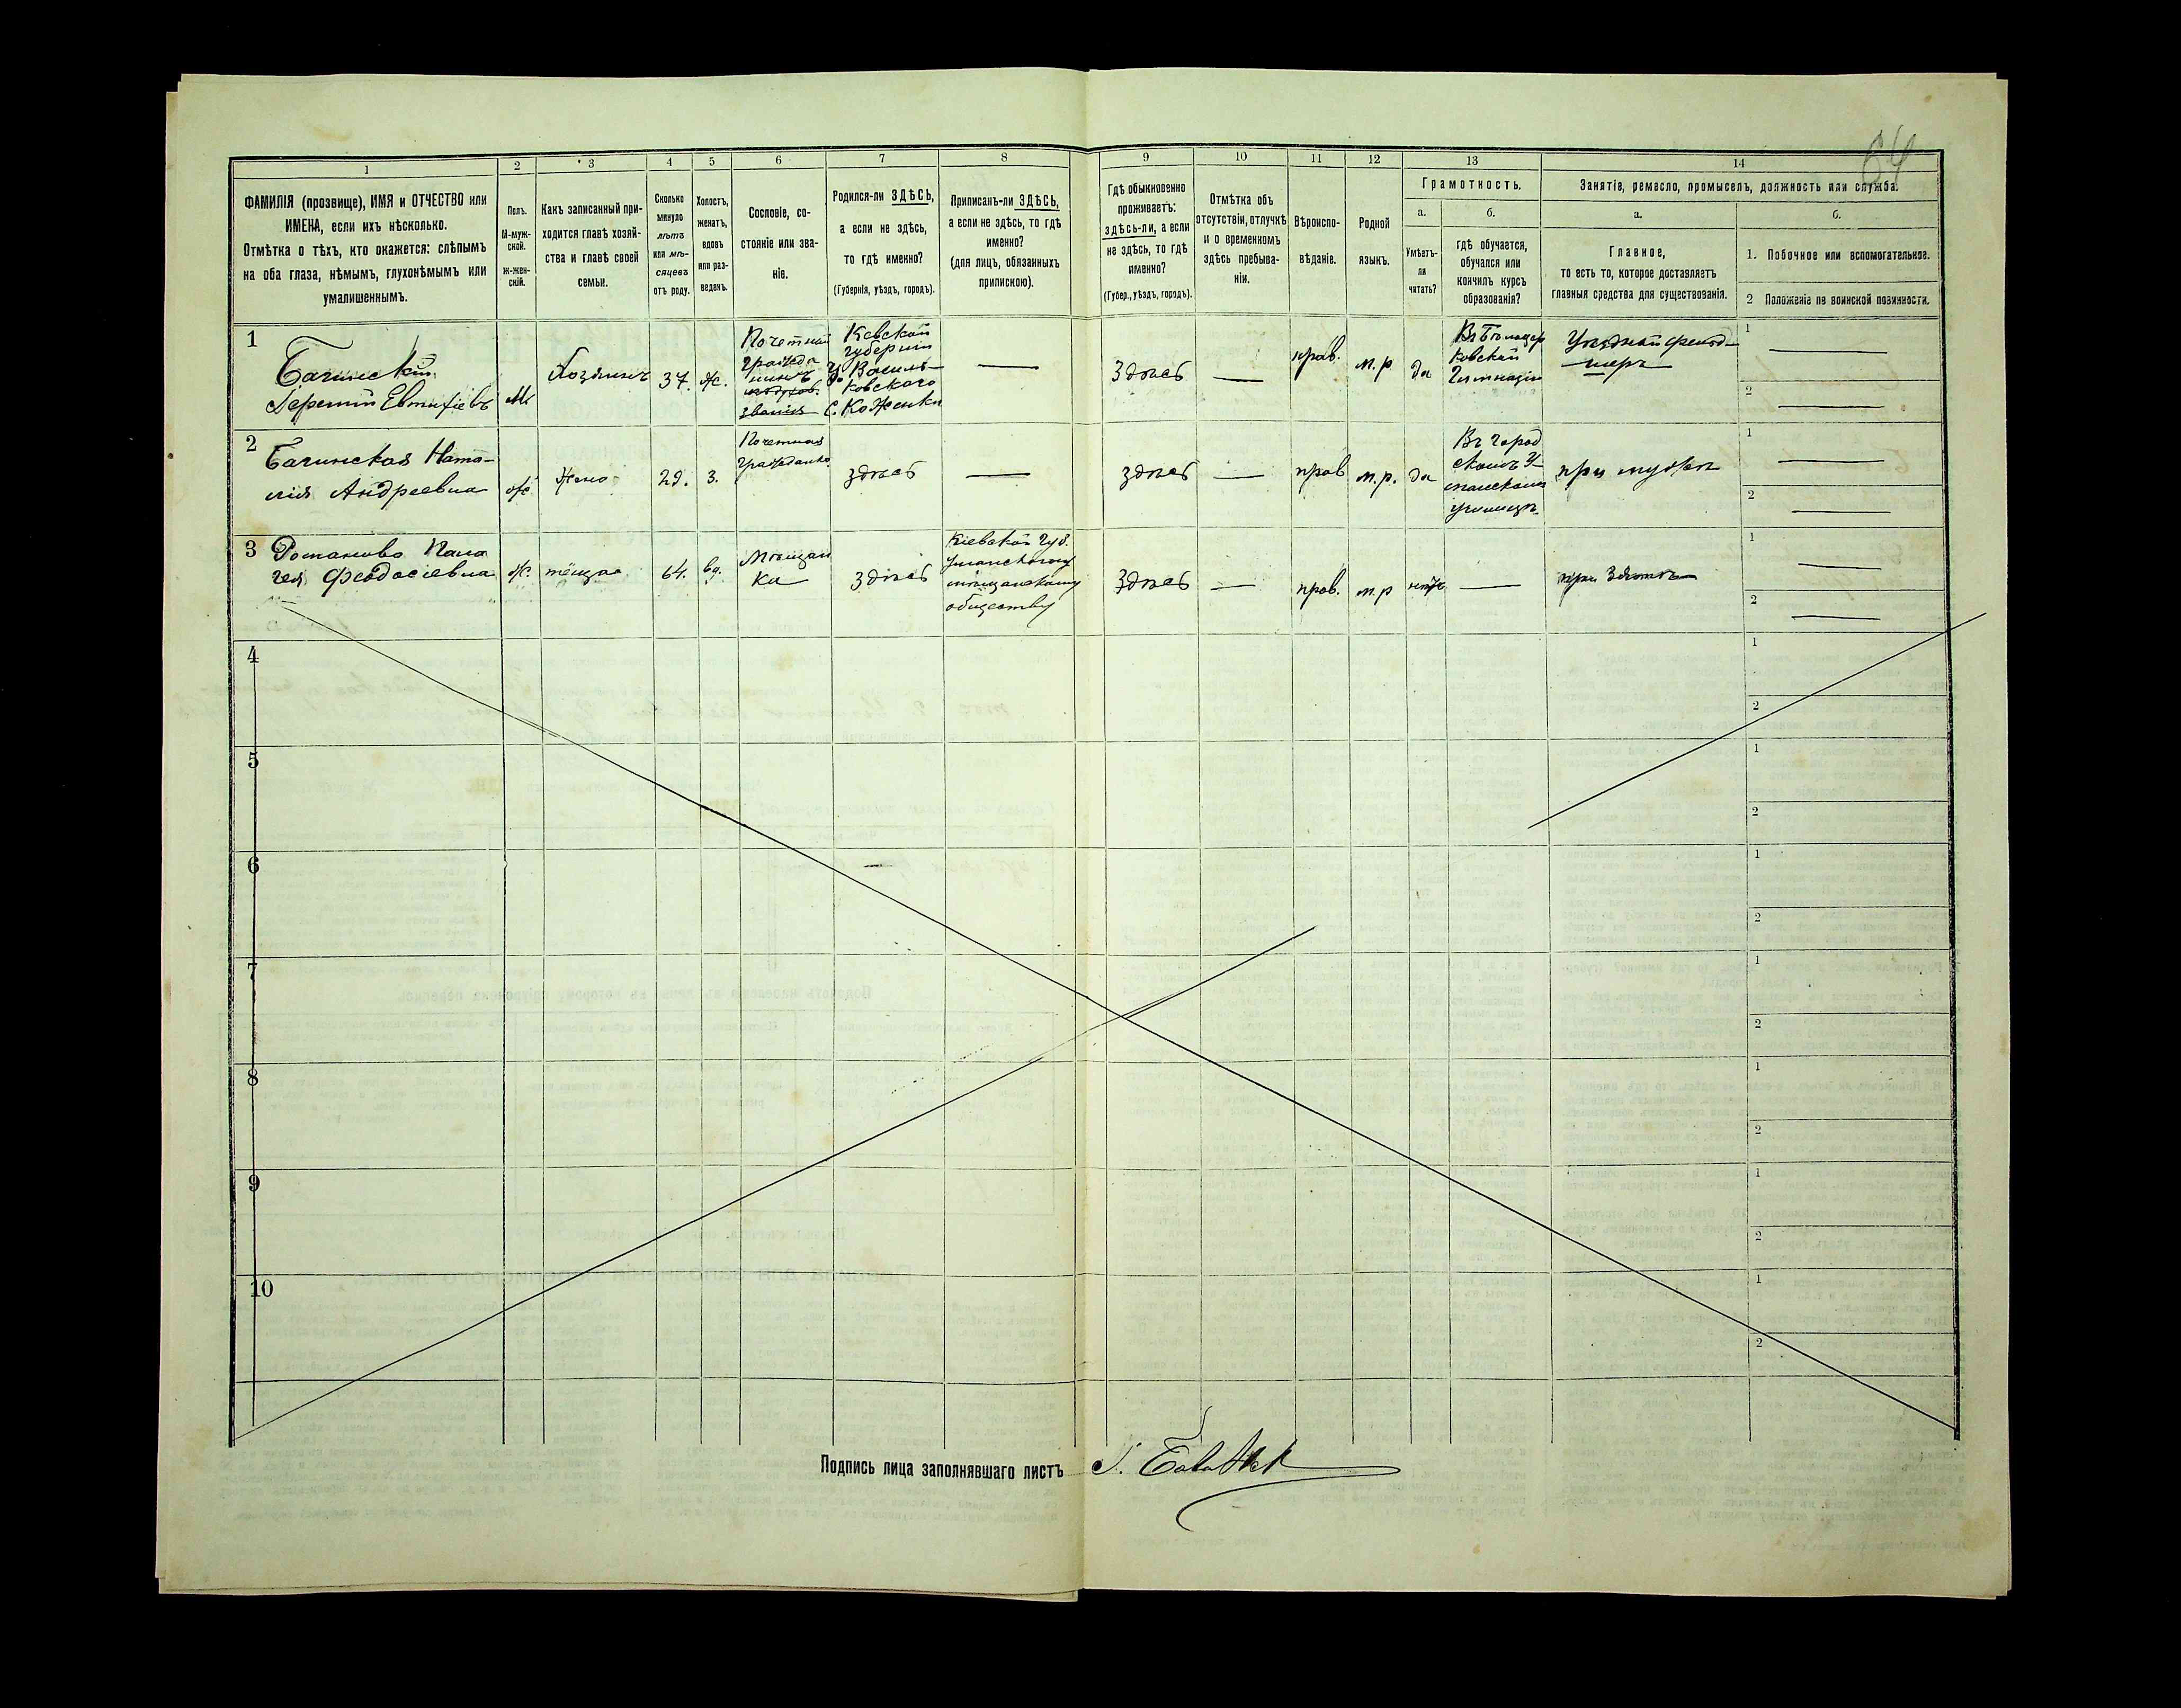 64
1 2 3 4 5 6 7 8 9 10 11 12 13 14
ФАМИЛІЯ (прозвище), ИМЯ и ОТЧЕСТВО или
ИМЕНА, если ихъ нѣсколько.
Отмѣтка о тѣхъ, кто окажется: слѣпымъ
на оба глаза, нѣмымъ, глухонѣмымъ или
умалишеннымъ.
Полъ.
М-муж-
ской.
ж-жен-
скій.
Какъ записанный при-
ходится главѣ хозяй-
ства и главѣ своей
семьи.
Сколько
минуло
лѣтъ
или мѣ-
сяцевъ
отъ роду.
Холостъ,
женатъ,
вдовъ
или раз-
веденъ.
Сословіе, со-
стояніе или зва-
ніе.
Родился-ли ЗДѢСЬ,
а если не здѣсь,
то гдѣ именно?
(Губернія, уѣздъ, городъ).
Приписанъ-ли ЗДѢСЬ,
а если не здѣсь, то гдѣ
именно?
(для лицъ, обязанныхъ
припискою).
Гдѣ обыкновенно
проживаетъ:
здѣсь-ли, а если
не здѣсь, то гдѣ
именно?
(Губер., уѣздъ, городъ).
Отмѣтка объ
отсутствіи, отлучкѣ
и о временномъ
здѣсь пребыва-
ніи.
Вѣроиспо-
вѣданіе.
Родной
языкъ.
Грамотность.
а.
Умѣетъ-
ли
читать?
б.
гдѣ обучается,
обучался или
кончилъ курсъ
образованія?
Занятіе, ремесло, промыселъ, должность или служба.
а.
Главное,
то есть то, которое доставляетъ
главныя средства для существованія.
б.
1. Побочное или вспомогательное.
2 Положеніе по воинской повинности.
1
Бачинскій
Евтихіевъ
М
Хозяинъ
37.
ж.
Почетный
гражда
нинъ
званія
Кевской
губерніи
У. Василь-
ковскаго
с. Коженки
—
Здѣсь
—
прав.
м. р
да
Гимназіи
Уѣздный
1 —
2 —
2
Бачинская Ната-
лія Андреевна
ж
Жена
29.
з.
Почетная
гражданка
здѣсь
—
здѣсь
—
прав
м. р.
да
Въ город
скомъ У-
манскомъ
училищѣ
при мужѣ
1 —
2 —
3
Романова Пела
гея Феодосіевна
ж.
тёща
64.
вд.
Мѣщан
ка
здѣсь
Кіевской Губ.
Уманскому
мѣщанскому
обществу
Здѣсь
—
прав.
м. р
нѣтъ
—
при зятѣ
1 —
2 —
4 1
2
5 1
2
6 1
2
7 1
2
8 1
2
9 1
2
10 1
2
Подпись лица заполнявшаго листъ